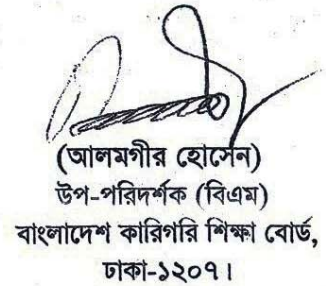 (আলমগীর হোসেন)
উপ-পরিদর্শক (বিএম)
বাংলাদেশ কারিগরি শিক্ষা বোর্ড,
ঢাকা-১২০৭।